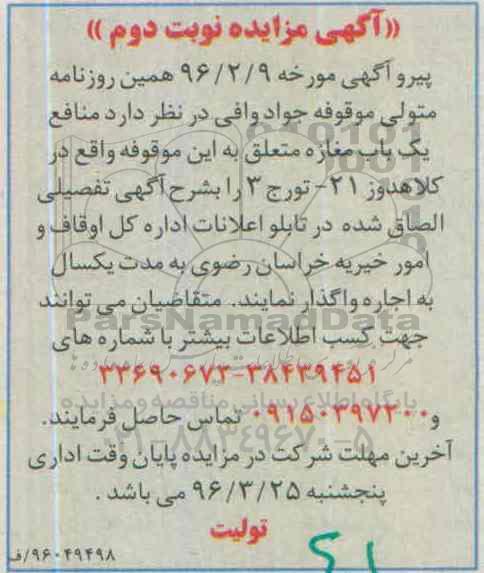 ((آگهی مزایده نوبت دوم))
پیرو آگهی مورخه ۹۶/۲/۹ همین روزنامه
متولی موقوفه جواد وافی در نظر دارد منافع
یک باب مغازه متعلق به این موقوفه واقع در
کلاهدوز ۲۱- تورج ۳ را بشرح آگهی تفصیلی
الصاق شده در تابلو اعلانات اداره کل اوقاف و
امور خیریه خراسان رضوی به مدت یکسال
به اجاره واگذار نمایند. متقاضیان می توانند
ParsNamadData
جهت کسب اطلاعات بیشتر با شماره های
۳۳۶۹۰۶۷۳-۳۸۴۳۹۴۵۱
پایگاه اطلاع رسانی مناقصه و مزایده
و ۰۹۱۵۰۳۹۷۲۰۰ تماس حاصل فرمایند.
۰۲۱-۸۸۳۴۹۶۷۰-۵
آخرین مهلت شرکت در مزایده پایان وقت اداری
پنجشنبه ۹۶/۳/۲۵ می باشد .
تولیت
۹۶۰۴۹۴۹۸/ف